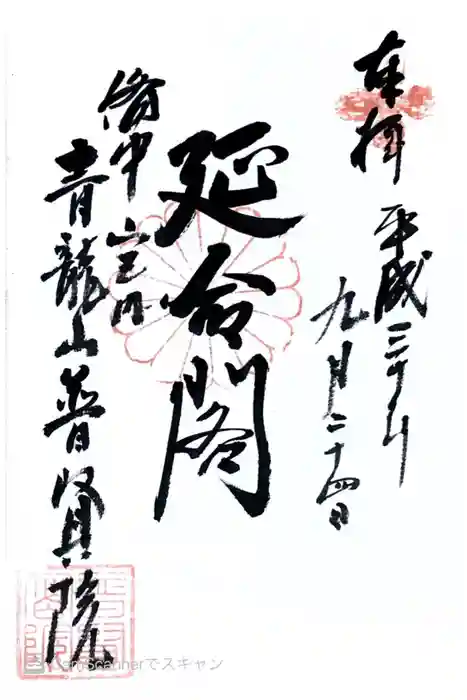 奉拝 平成三十年
九月二十四日
延命閣
備中
青龍山普賢院
CamScannerでスキャン